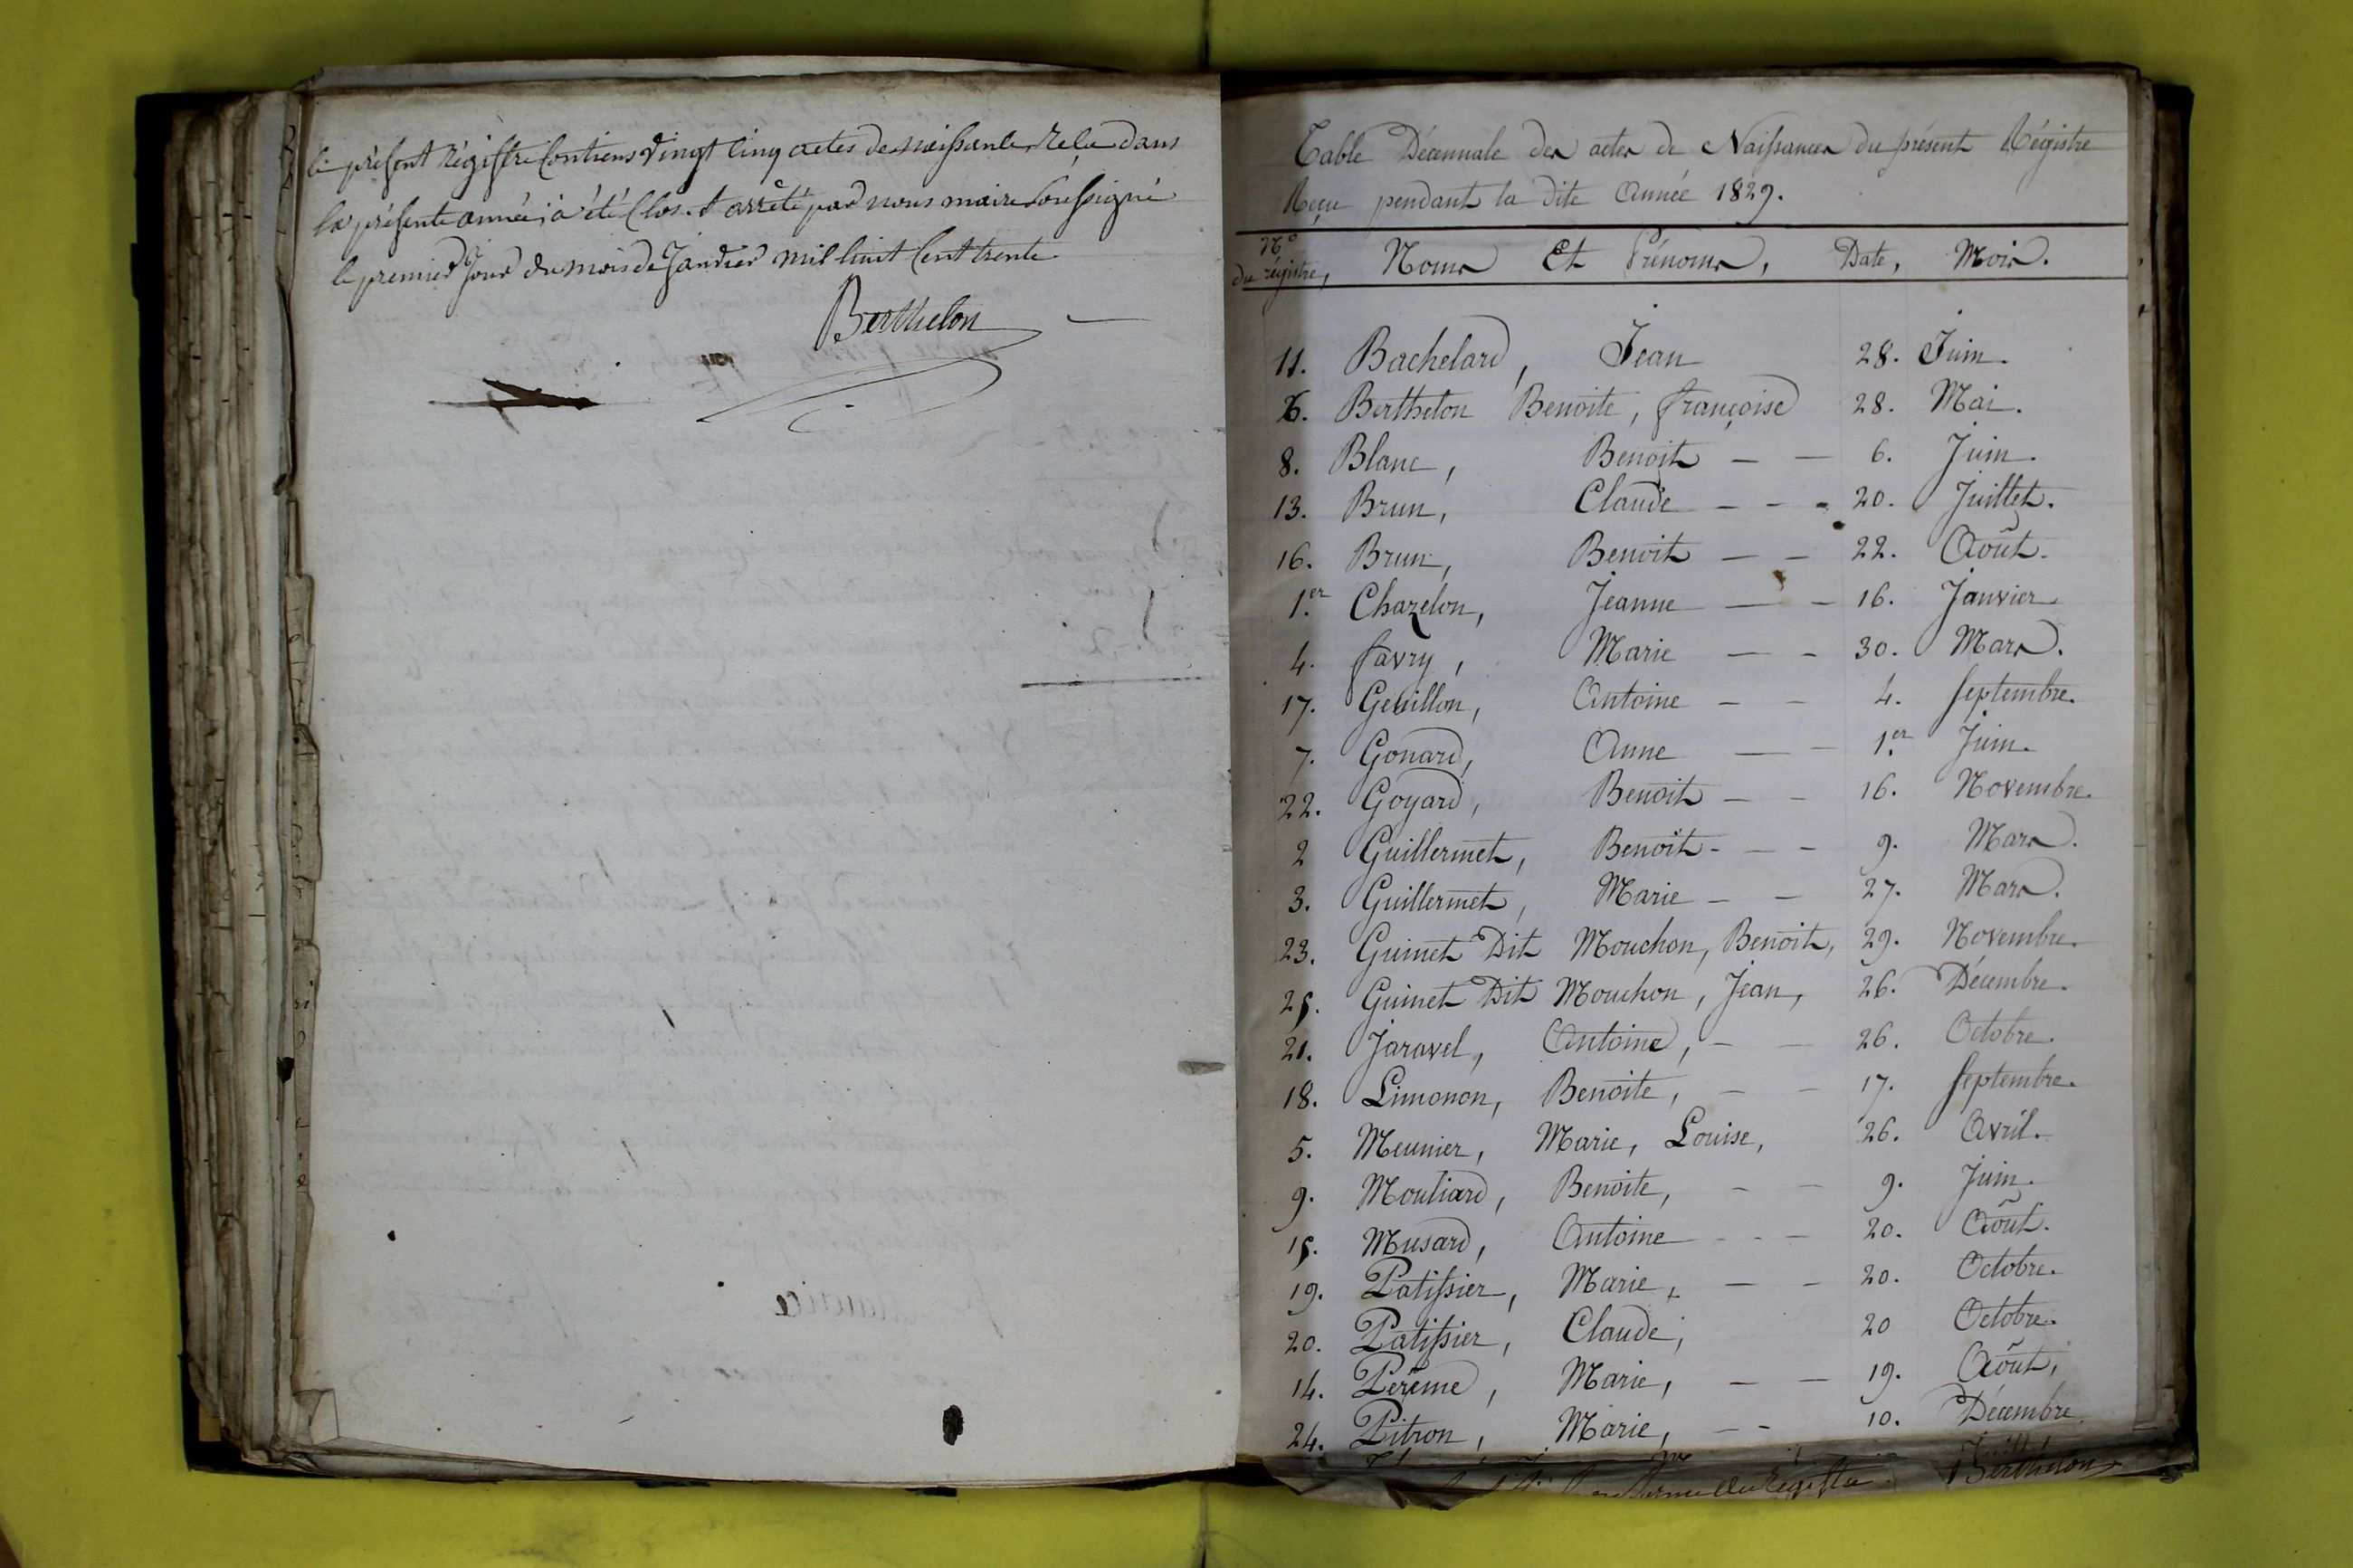 le présent Régistre Contiens Vingt Cinq actes de naissance Reçu dans
la présente année, a été Clos. & arrêté par nous maire Soussigné
le premier Jour du mois de Janvier mil huit Cent trente
Berthelon
Table Décennale des actes de Naissances du présent Régistre
Reçu pendant la dite Année 1829.
N.º du régistre, Noms Et Prénoms, Date, Mois.
11. Bachelard, Jean 28. Juin.
6. Berthelon Benoite, françoise 28. Mai.
8. Blanc, Benoit — — 6. Juin.
13. Brun, Claude - - - 20. Juillet.
16. Brun, Benoit — — 22. Août.
1.er Chazelon, Jeanne — — 16. Janvier
4. favry, Marie — — 30. Mars.
17. Gevillon, Antoine — — 4. Septembre.
7. Gonard, Anne — — 1.er Juin.
22. Goyard, Benoit — — 16. Novembre.
2 Guillermet, Benoit - — — 9. Mars.
3. Guillermet, Marie — — 27. Mars.
23. Guinet Dit Mouchon, Benoit, 29. Novembre.
25. Guinet Dit Mouchon, Jean, 26. Décembre.
21. Jaravel, Antoine, — — 26. Octobre.
18. Limonon, Benoite, — — 17. Septembre.
5. Meunier, Marie, Louise, 26. Avril.
9. Mouliard, Benoite, — — 9. Juin.
15. Musard, Antoine - - - 20. Août.
19. Patissier, Marie, — — 20. Octobre.
20. Patissier, Claude, 20 Octobre.
14. Perême, Marie, — — 19. Août,
24. Pitron, Marie, — — 10. Décembre
du Registre Berthelon